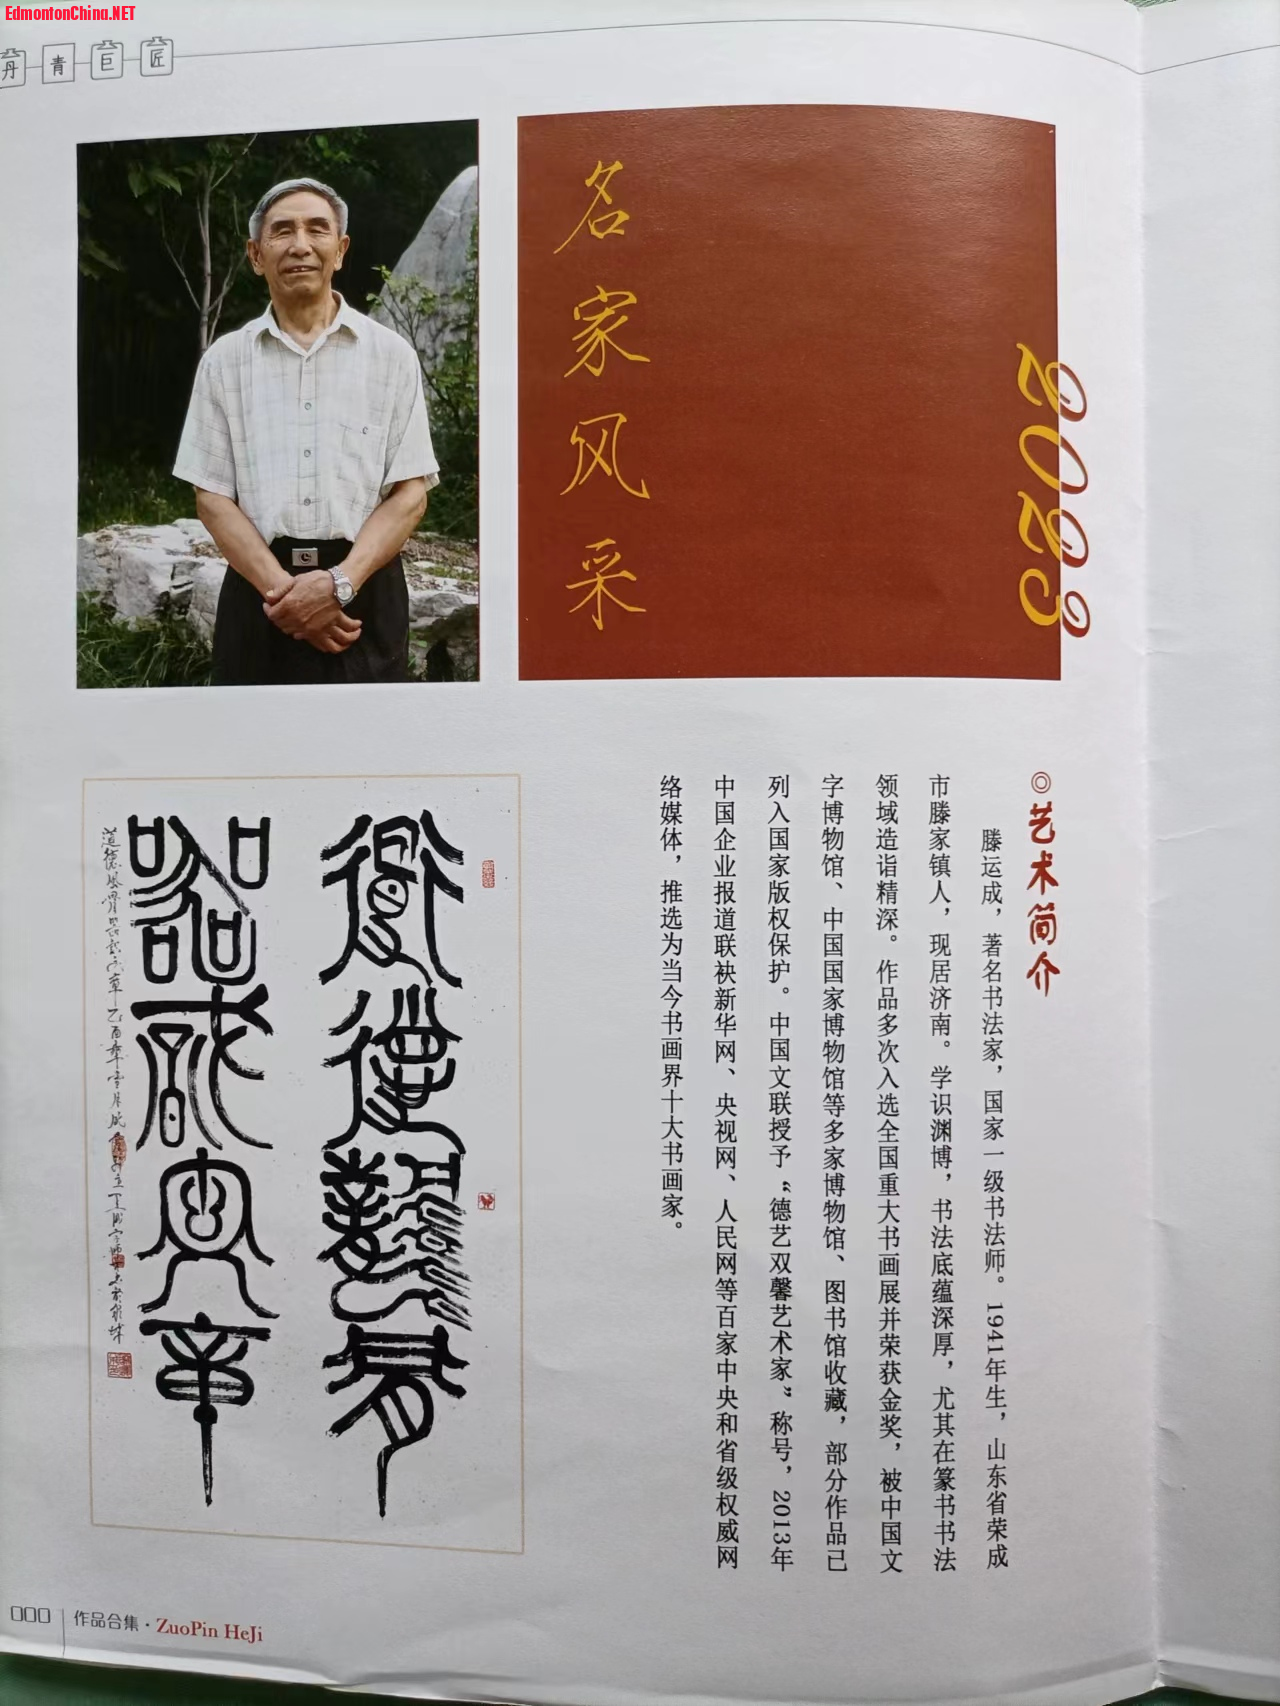 EdmontonChina.NET
丹青巨匠
名家风采
2023
◎艺术简介
滕运成，著名书法家，国家一级书法师。1941年生，山东省荣成
市滕家镇人，现居济南。学识渊博，书法底蕴深厚，尤其在篆书书法
领域造诣精深。作品多次入选全国重大书画展并荣获金奖，被中国文
字博物馆、中国国家博物馆等多家博物馆、图书馆收藏，部分作品已
列入国家版权保护。中国文联授予“德艺双馨艺术家”称号，2013年
中国企业报道联袂新华网、央视网、人民网等百家中央和省级权威网
络媒体，推选为当今书画界十大书画家。
000 作品合集·ZuoPin HeJi